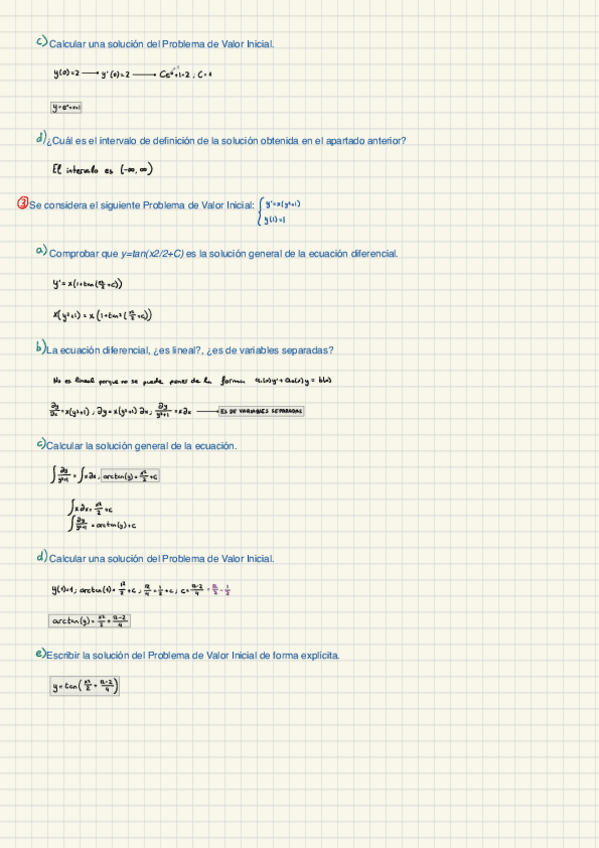 c) Calcular una solución del Problema de Valor Inicial.
y(0)=2 → y'(0)=2 → Ce⁰+1=2 ; C=1
d) ¿Cuál es el intervalo de definición de la solución obtenida en el apartado anterior?
El intervalo es (-∞, ∞)
3 Se considera el siguiente Problema de Valor Inicial: { y'=x(y²+1)
y(1)=1
a) Comprobar que y=tan(x2/2+C) es la solución general de la ecuación diferencial.
x(y²+1) = x(1+tan²(x²/2+c))
b) La ecuación diferencial, ¿es lineal?, ¿es de variables separadas?
No es lineal porque no se puede poner de la forma a₁(x)y'+a₀(x)y = b(x)
∂y/∂x = x(y²+1) ; ∂y = x(y²+1) ∂x ; ∂y/y²+1 = x∂x → ES DE VARIABLES SEPARADAS
c) Calcular la solución general de la ecuación.
∫ ∂y/y²+1 = ∫ x∂x ; arctan(y) = x²/2 + c
∫ x∂x = x²/2 + c
∫ ∂y/y²+1 = arctan(y)+c
d) Calcular una solución del Problema de Valor Inicial.
y(1)=1 ; arctan(1) = 1²/2 + c ; π/4 = 1/2 + c ; c = π-2/4 = π/4 - 1/2
arctan(y) = x²/2 + π-2/4
e) Escribir la solución del Problema de Valor Inicial de forma explícita.
y = tan(x²/2 + π-2/4)